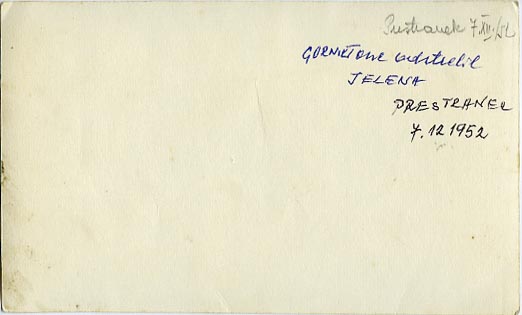 Prestranek 7.XII./52
GORNIK Tone ustrelil
JELENA
PRESTRANEK
7.12 1952